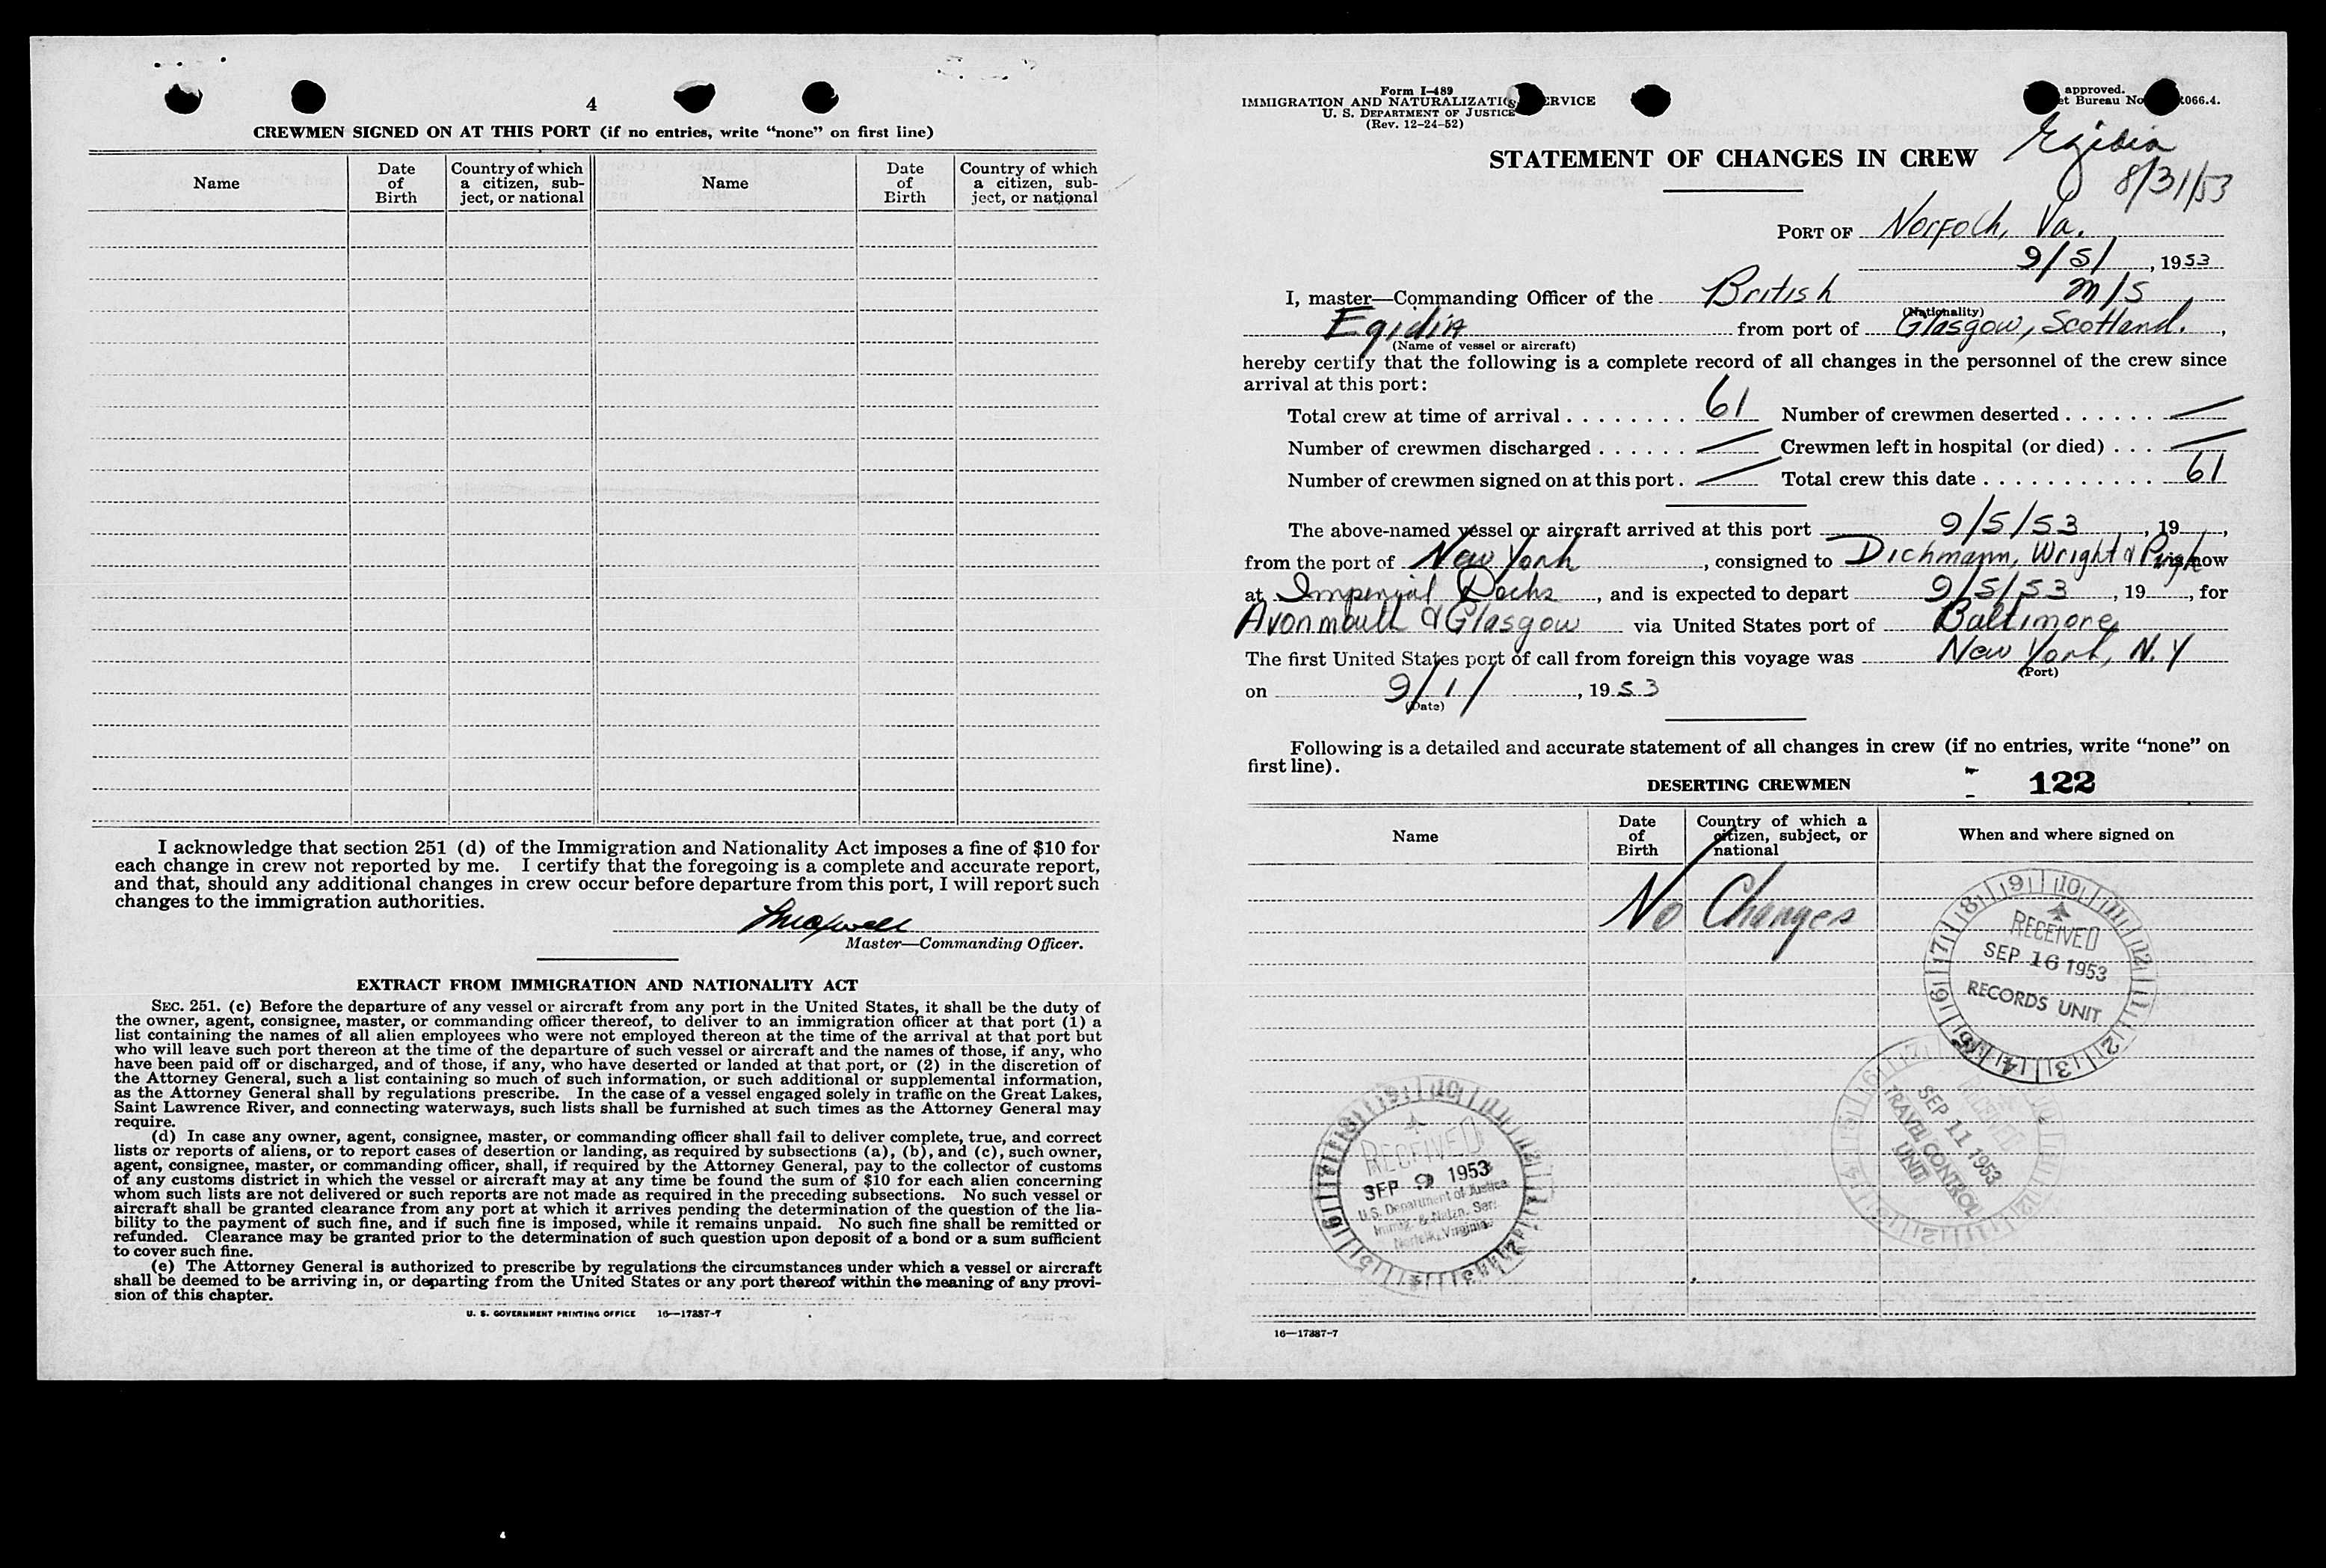 4
CREWMEN SIGNED ON AT THIS PORT (if no entries, write “none” on first line)
Name
Date of Birth
Country of which a citizen, sub-ject, or national
Name
Date of Birth
Country of which a citizen, sub-ject, or national
I acknowledge that section 251 (d) of the Immigration and Nationality Act imposes a fine of $10 for
each change in crew not reported by me. I certify that the foregoing is a complete and accurate report,
and that, should any additional changes in crew occur before departure from this port, I will report such
changes to the immigration authorities.
Master—Commanding Officer.
EXTRACT FROM IMMIGRATION AND NATIONALITY ACT
SEC. 251. (c) Before the departure of any vessel or aircraft from any port in the United States, it shall be the duty of
the owner, agent, consignee, master, or commanding officer thereof, to deliver to an immigration officer at that port (1) a
list containing the names of all alien employees who were not employed thereon at the time of the arrival at that port but
who will leave such port thereon at the time of the departure of such vessel or aircraft and the names of those, if any, who
have been paid off or discharged, and of those, if any, who have deserted or landed at that port, or (2) in the discretion of
the Attorney General, such a list containing so much of such information, or such additional or supplemental information,
as the Attorney General shall by regulations prescribe. In the case of a vessel engaged solely in traffic on the Great Lakes,
Saint Lawrence River, and connecting waterways, such lists shall be furnished at such times as the Attorney General may
require.
(d) In case any owner, agent, consignee, master, or commanding officer shall fail to deliver complete, true, and correct
lists or reports of aliens, or to report cases of desertion or landing, as required by subsections (a), (b), and (c), such owner,
agent, consignee, master, or commanding officer, shall, if required by the Attorney General, pay to the collector of customs
of any customs district in which the vessel or aircraft may at any time be found the sum of $10 for each alien concerning
whom such lists are not delivered or such reports are not made as required in the preceding subsections. No such vessel or
aircraft shall be granted clearance from any port at which it arrives pending the determination of the question of the lia-
bility to the payment of such fine, and if such fine is imposed, while it remains unpaid. No such fine shall be remitted or
refunded. Clearance may be granted prior to the determination of such question upon deposit of a bond or a sum sufficient
to cover such fine.
(e) The Attorney General is authorized to prescribe by regulations the circumstances under which a vessel or aircraft
shall be deemed to be arriving in, or departing from the United States or any port thereof within the meaning of any provi-
sion of this chapter.
U. S. GOVERNMENT PRINTING OFFICE 16—17387-7
Form I-489
IMMIGRATION AND NATURALIZATION SERVICE
U. S. DEPARTMENT OF JUSTICE
(Rev. 12-24-52)
approved.
et Bureau No 066.4.
Egidia
8/31/53
STATEMENT OF CHANGES IN CREW
PORT OF Norfolk, Va.
9/5/, 1953
I, master—Commanding Officer of the British m/s
(Nationality)
Egidia from port of Glasgow, Scotland.,
(Name of vessel or aircraft)
hereby certify that the following is a complete record of all changes in the personnel of the crew since
arrival at this port:
Total crew at time of arrival 61 Number of crewmen deserted —
Number of crewmen discharged — Crewmen left in hospital (or died) —
Number of crewmen signed on at this port — Total crew this date 61
The above-named vessel or aircraft arrived at this port 9/5/53, 19 ,
from the port of New York, consigned to Dichmann, Wright & Pugh is now
at Imperial Docks, and is expected to depart 9/5/53, 19 , for
Avonmouth & Glasgow via United States port of Baltimore
The first United States port of call from foreign this voyage was New York, N.Y
(Port)
on 9/1/, 1953
(Date)
Following is a detailed and accurate statement of all changes in crew (if no entries, write “none” on
first line).
DESERTING CREWMEN
122
Name
Date of Birth
Country of which a citizen, subject, or national
When and where signed on
No Changes
9 10 11 12 1 2 3 4 5 16 17 8
RECEIVED
SEP 16 1953
RECORDS UNIT
RECEIVED
SEP 11 1953
TRAVEL CONTROL
UNIT
RECEIVED
SEP 9 1953
U.S. Department of Justice
Immig. & Natzn. Serv.
Norfolk, Virginia
16—17387-7